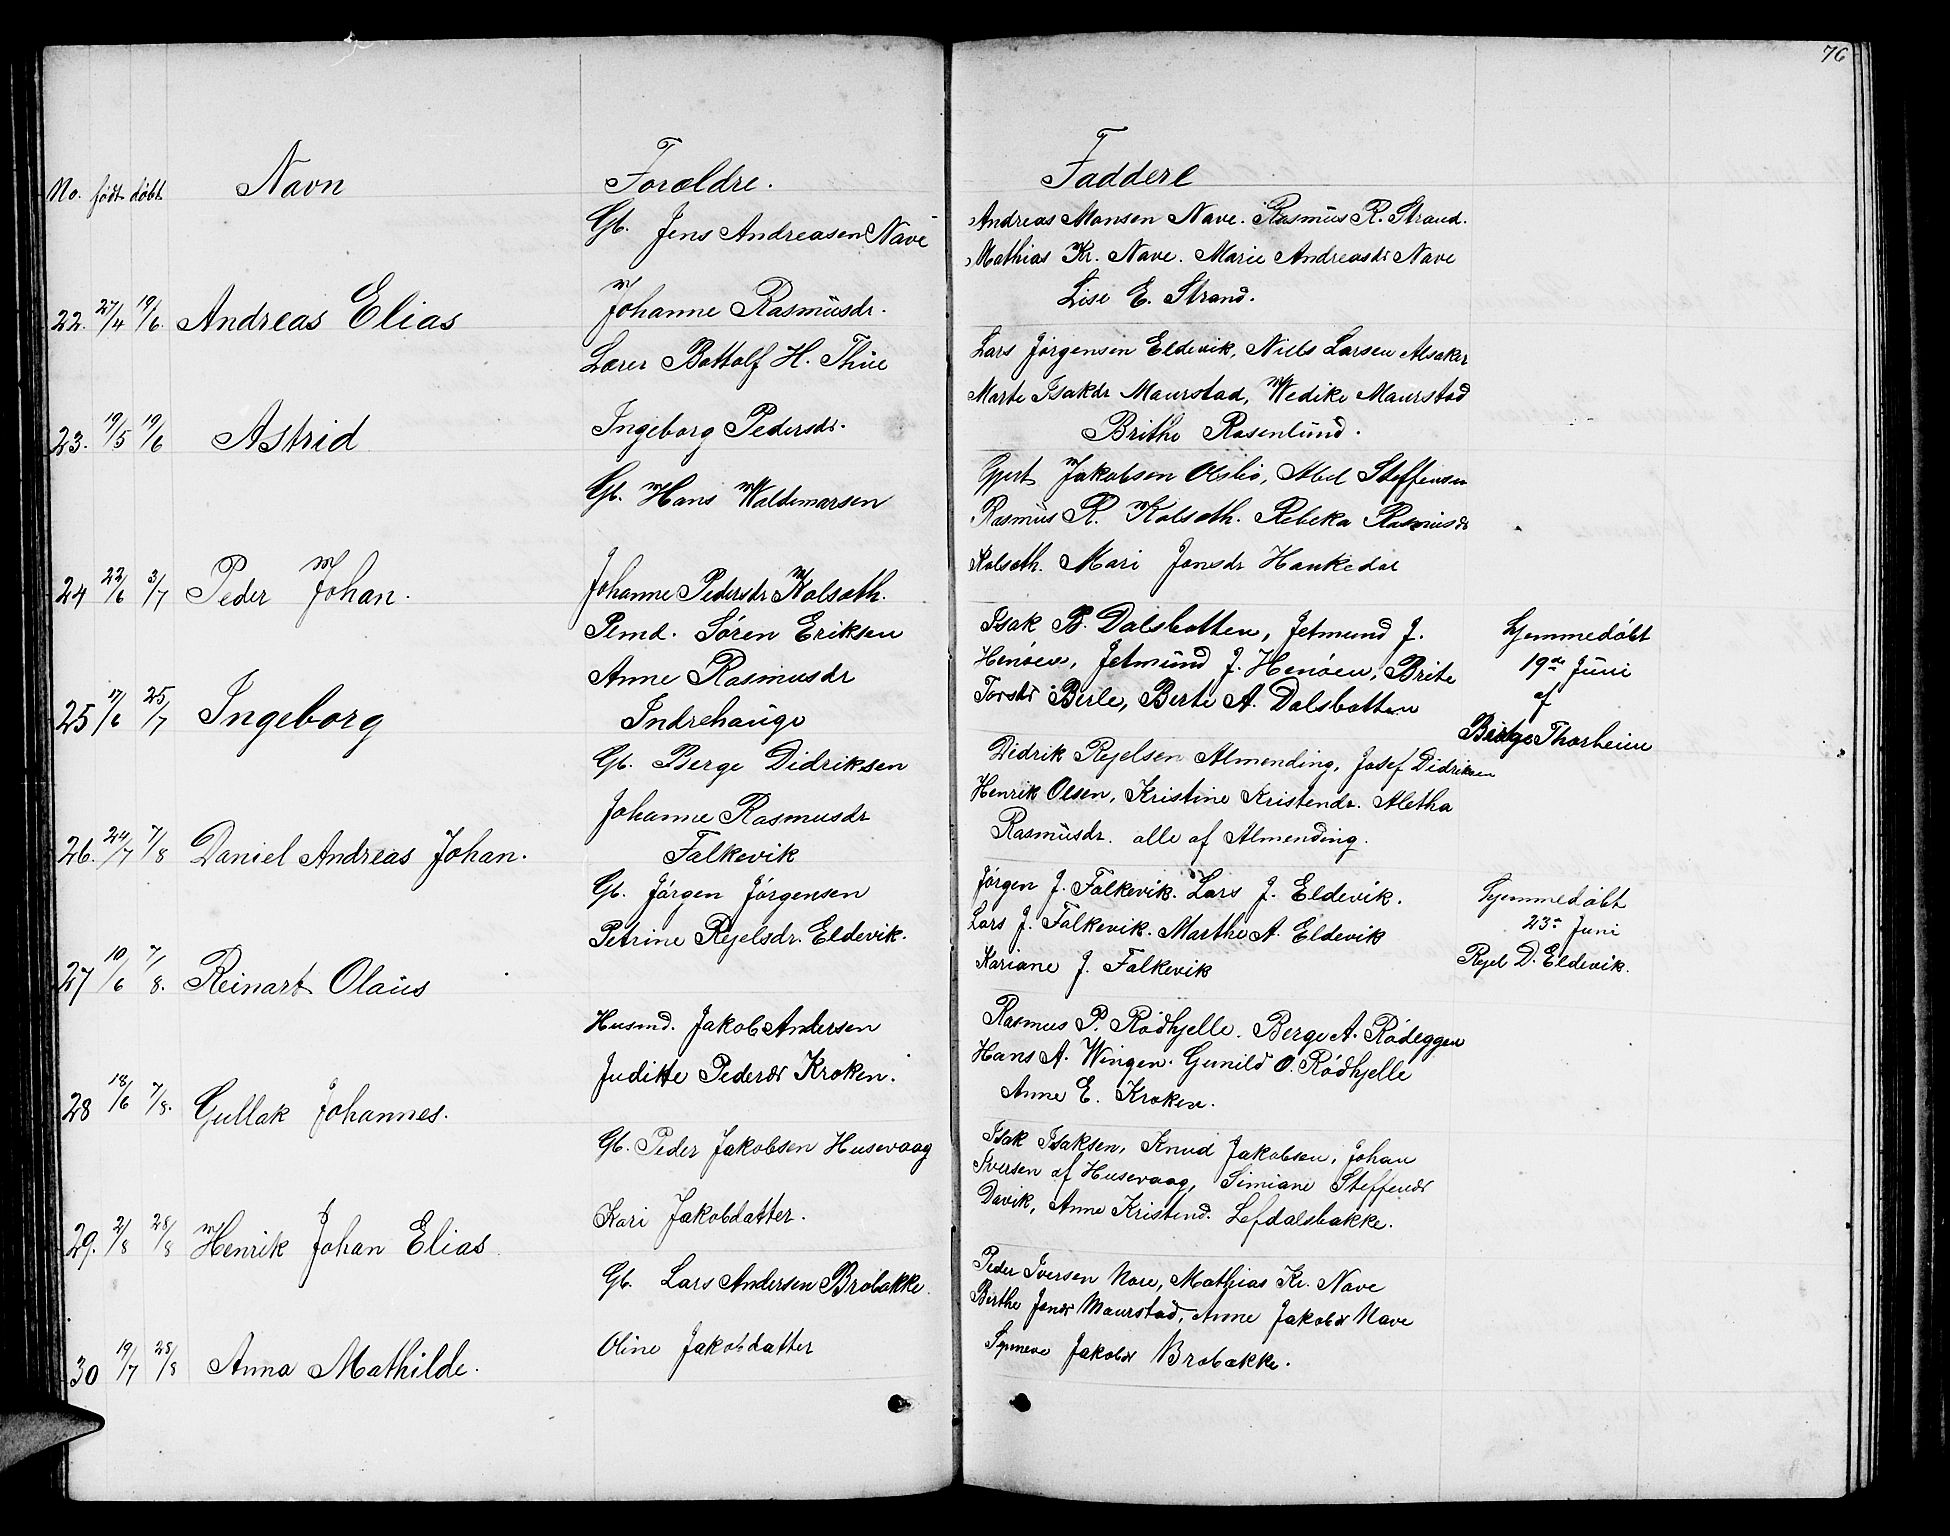 76
No. født døbt Navn Forældre. Faddere
Gb. Jens Andreasen Nave
22. 27/4 19/6. Andreas Elias
Johanne Rasmusdr.
Andreas Monsen Nave. Rasmus R. Strand.
Mathias Kr. Nave. Marie Andreasdr Nave
Lise E. Strand.
Lærer Bottolf H. Thue
23. 19/5 19/6 Astrid
Ingeborg Pedersdr.
Lars Jørgensen Eldevik, Niels Larsen Alsaker
Marte Isakdr Maurstad, Wedike Maurstad
Brithe Rosenlund.
Gb. Hans Waldemarsen
24 22/6 3/7 Peder Johan.
Johanne Pedersdr Kolseth.
Gjert Jakobsen Olsbø, Abel Steffensen
Rasmus R. Kolseth. Rebeka Rasmusdr
Kolseth. Mari Jonsdr Hankedal
Pemd. Søren Eriksen
Anne Rasmusdr
25 17/6 25/7 Ingeborg
Indrehauge
Isak B. Dalsbotten, Jetmund J.
Henøen, Jetmund J. Henøen, Brite
Torsdr Berle, Berte A. Dalsbotten
Hjemmedøbt
19de Juni
af
Børge Thorheim
Gb. Berge Didriksen
Johanne Rasmusdr
26. 24/7 7/8 Daniel Andreas Johan.
Falkevik
Didrik Rejelsen Almending, Josef Didriksen
Henrik Olsen, Kristine Kristendr. Aletha
Rasmusdr. alle af Almending.
Gb. Jørgen Jørgensen
Petrine Rejelsdr. Eldevik.
27 10/6 7/8. Reinart Olaus
Jørgen J. Falkevik. Lars J. Eldevik.
Lars J. Falkevik. Marthe A. Eldevik
Kariane J. Falkevik
Hjemmedøbt
23de Juni
Rejel D. Eldevik.
Husmd. Jakob Andersen
Judikte Pedersdr Kroken.
28 18/6 7/8. Gullak Johannes.
Rasmus P. Rødhjelle. Berge A. Rødeggen
Hans A. Wingen. Gunild O. Rødhjelle
Anne E. Kroken.
Gb. Peder Jakobsen Husevaag
Kari Jakobdatter.
29. 2/8 28/8 Henrik Johan Elias
Isak Isaksen, Knud Jakobsen, Johan
Iversen af Husevaag, Simiane Steffensdr
Davik, Anne Kristend. Lefdalsbakke.
Gb. Lars Andersen Brobakke.
Oline Jakobdatter
30 19/7 28/8 Anna Mathilde.
Peder Iversen Nore, Mathias Kr. Nave
Birthe Jensdr Maurstad, Anne Jakobdr Nave
Synneve Jakobdr Brobakke.